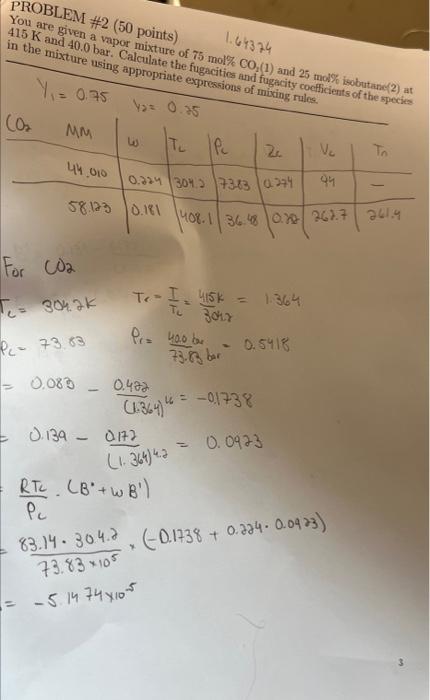 PROBLEM #2 (50 points)
1.64374
You are given a vapor mixture of 75 mol% CO₂(1) and 25 mol% isobutane(2) at
415 K and 40.0 bar. Calculate the fugacities and fugacity coefficients of the species
in the mixture using appropriate expressions of mixing rules.
Y₁ = 0.75 Y₂ = 0.25
CO₂ MM ω Tc Pc Zc Vc Tn
44.010 0.224 304.2 73.83 0.274 94 —
58.123 0.181 408.1 36.48 0.282 262.7 261.4
For CO₂
Tc = 304.2K Tr = T/Tc = 415K/304.2 = 1.364
Pc = 73.83 Pr = 40.0 bar/73.83 bar = 0.5418
= 0.083 - 0.422/(1.364)^1.6 = -0.1738
= 0.139 - 0.172/(1.364)^4.2 = 0.0923
= RTc/Pc · (B° + ω B')
= 83.14 · 304.2/73.83 × 10⁵ × (-0.1738 + 0.224 · 0.0923)
= -5.1474 × 10⁻⁵
3